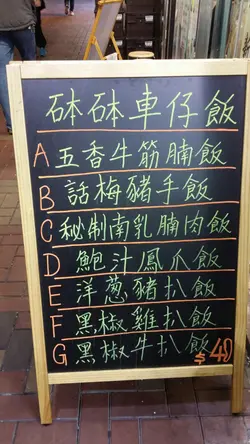 砵砵車仔飯
A 五香牛筋腩飯
B 話梅豬手飯
C 秘制南乳腩肉飯
D 鮑汁鳳爪飯
E 洋蔥豬扒飯
F 黑椒雞扒飯
G 黑椒牛扒飯 $40